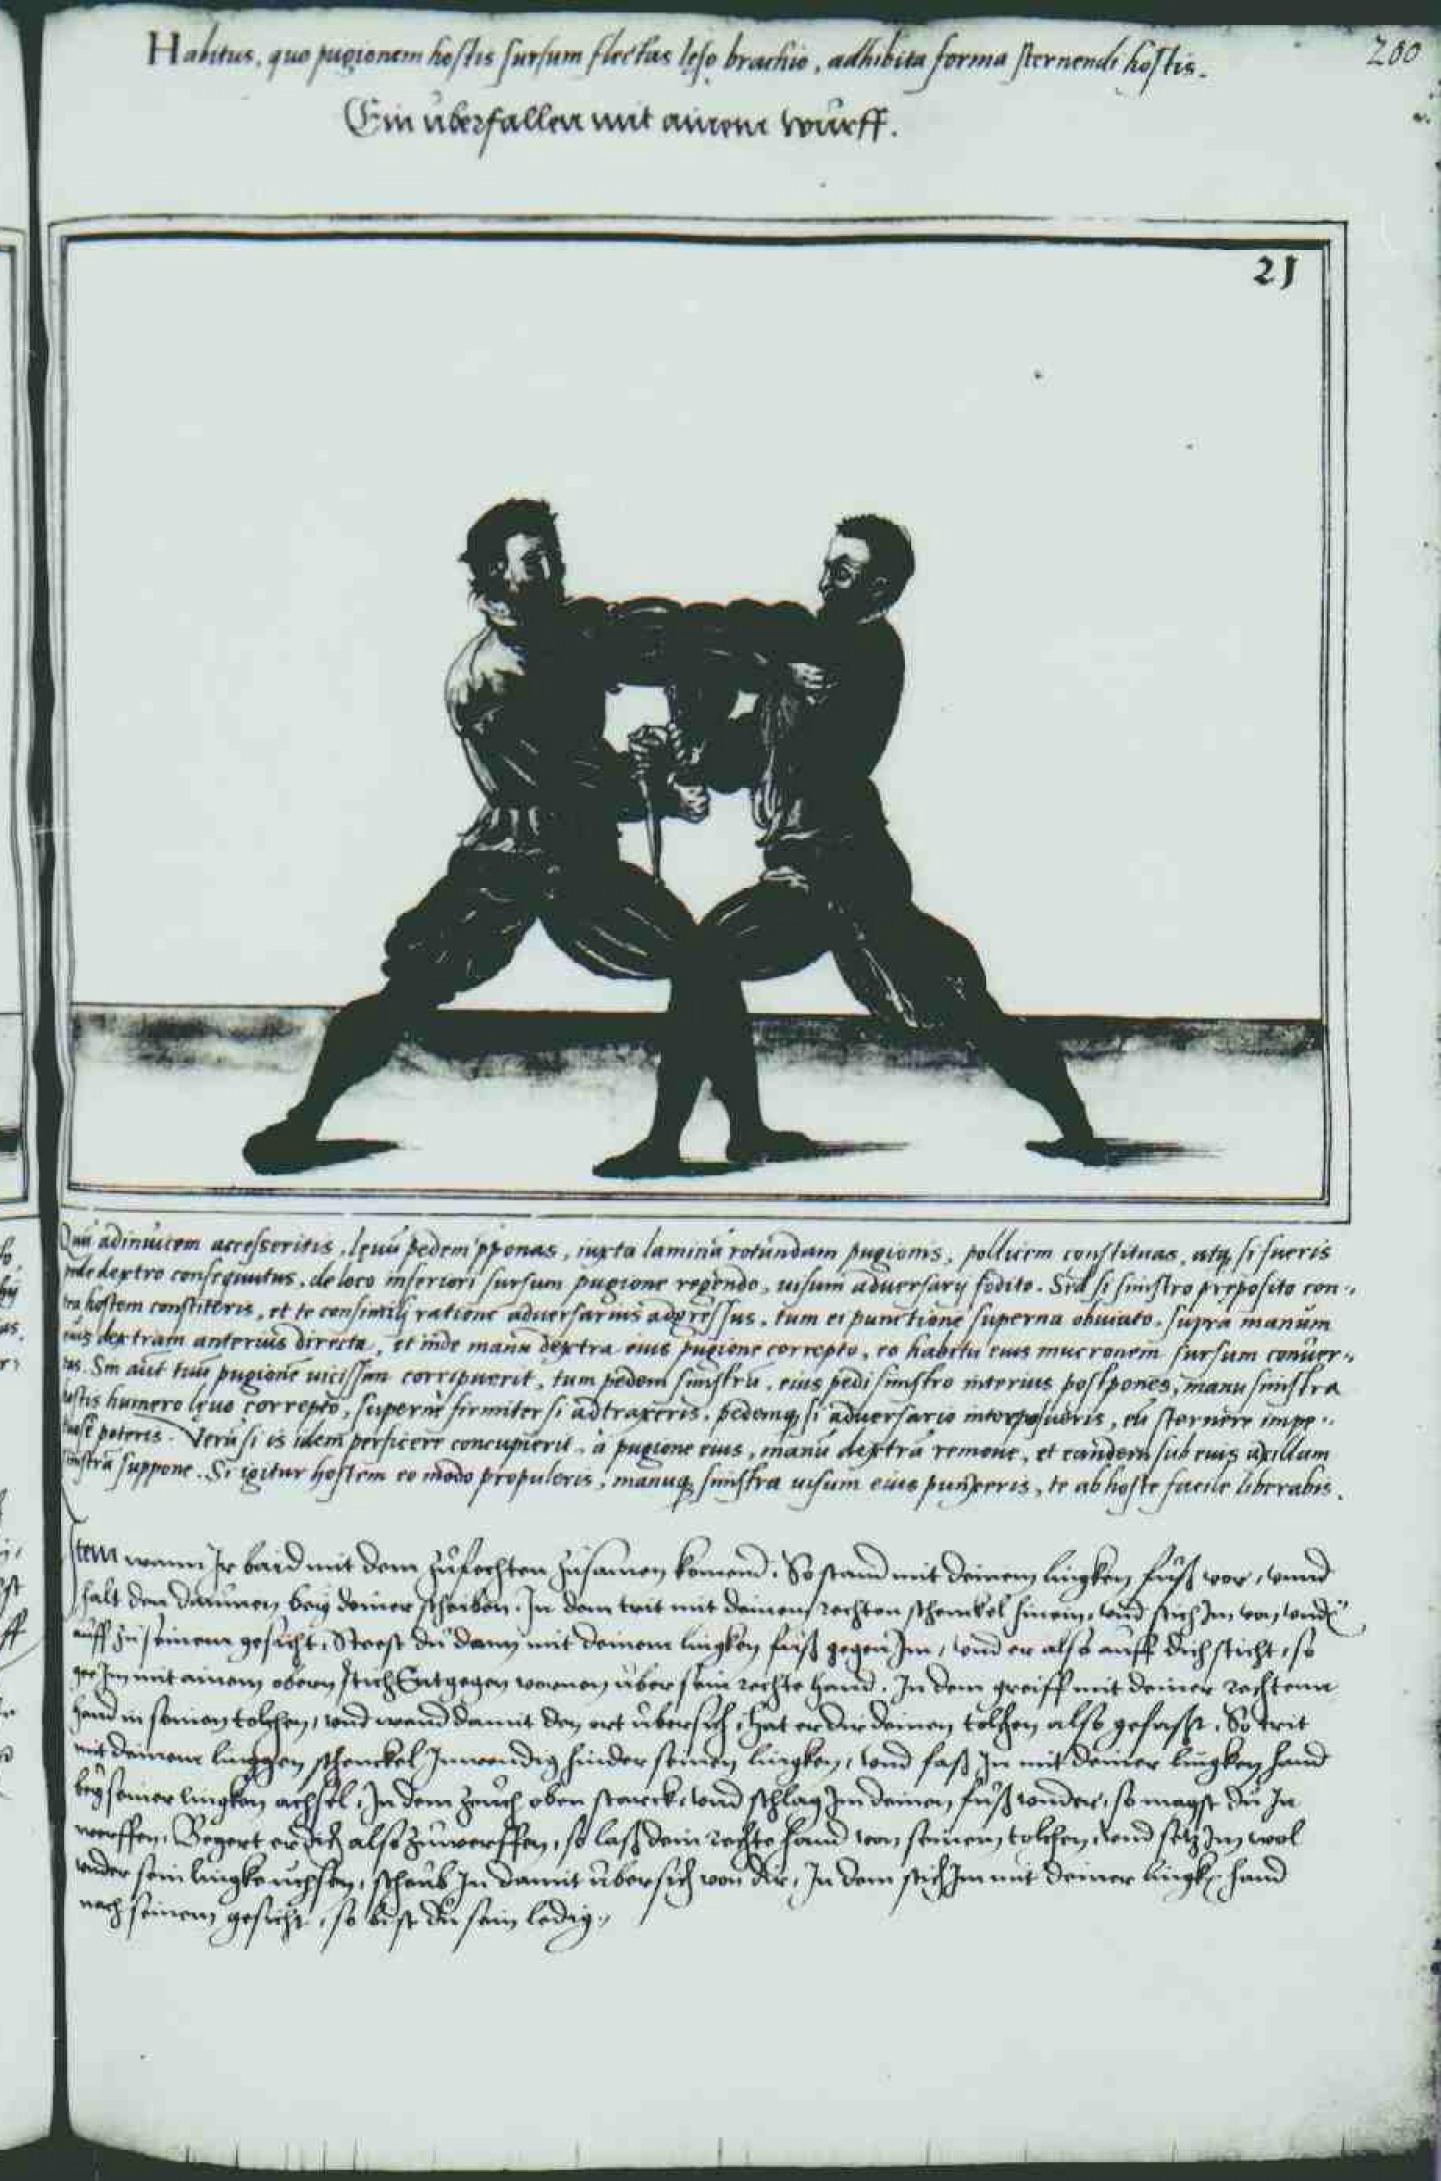 Habitus, quo pugionem hostis sursum flectas leso brachio, adhibita forma sternendi hostis.
200
Ein uberfallen mit ainem wurff.
21
adinuicem accesseritis, leuu pedem pponas, iuxta lamina rotundam pugionis, pollicem constituas, atq si fueris
pede dextro consequutus, de loco inferiori sursum pugione regendo, uisum aduersarij fodito. Sed si sinistro preposito con-
tra hostem constiteris, et te consimili ratione aduersarius adgressus, tum ei punctione superna obuiato, supra manum
eius dextram anterius directa, et inde manu dextra eius pugione correpto, eo habitu eius mucronem sursum conuer-
tas. Sin aut tuu pugione uicissim corripuerit, tum pedem sinistru, eius pedi sinistro interius postpones, manu sinistra
hostis humero leuo correpto, superne firmiter si adtraxeris, pedemq si aduersario interposueris, eu sternere
poteris. Veru si is idem perficere concupierit, a pugione eius, manu dextra remoue, et eandem sub eius axillam
sinistra suppone. Si igitur hostem eo modo propuleris, manuq sinistra uisum eius punxeris, te ab hoste facile liberabis.
Item wann Ir baid mit dem zufechten zusamen komend. So stand mit deinem lingken fuß vor, vnnd
halt den daumen beij deiner scheiben. In dem trit mit deinem rechten schenckel hinein, vnd stich Im von
auff zu seinem gesicht, Steest du dann mit deinem lingken fuß gegen Im, vnd er also auff dich sticht, so
gee Im mit ainem obern stich Entgegen vornen uber sein rechte hand. In dem greiff mit deiner rechten
hand in seinen tolchen, vnd wend damit den ort ubersich, hat er dir deinen tolchen also gefasst, So trit
mit deinem linggen schenckel Inwendig hinder seinen lingken, vnd faß In mit deiner lingken hand
beij seiner lingken achsel, In dem zeuch oben starck, vnd schlag Im deinen fuß vnder, so magst du In
werffen, Begert er dich also zuwerffen, so laß dein rechte hand von seinem tolchen, vnd setz Im wol
vnder sein lingke uchsen, scheub In damit ubersich von dir, In dem stich Im mit deiner hand
nach seinem gesicht, so bist du sein ledig.